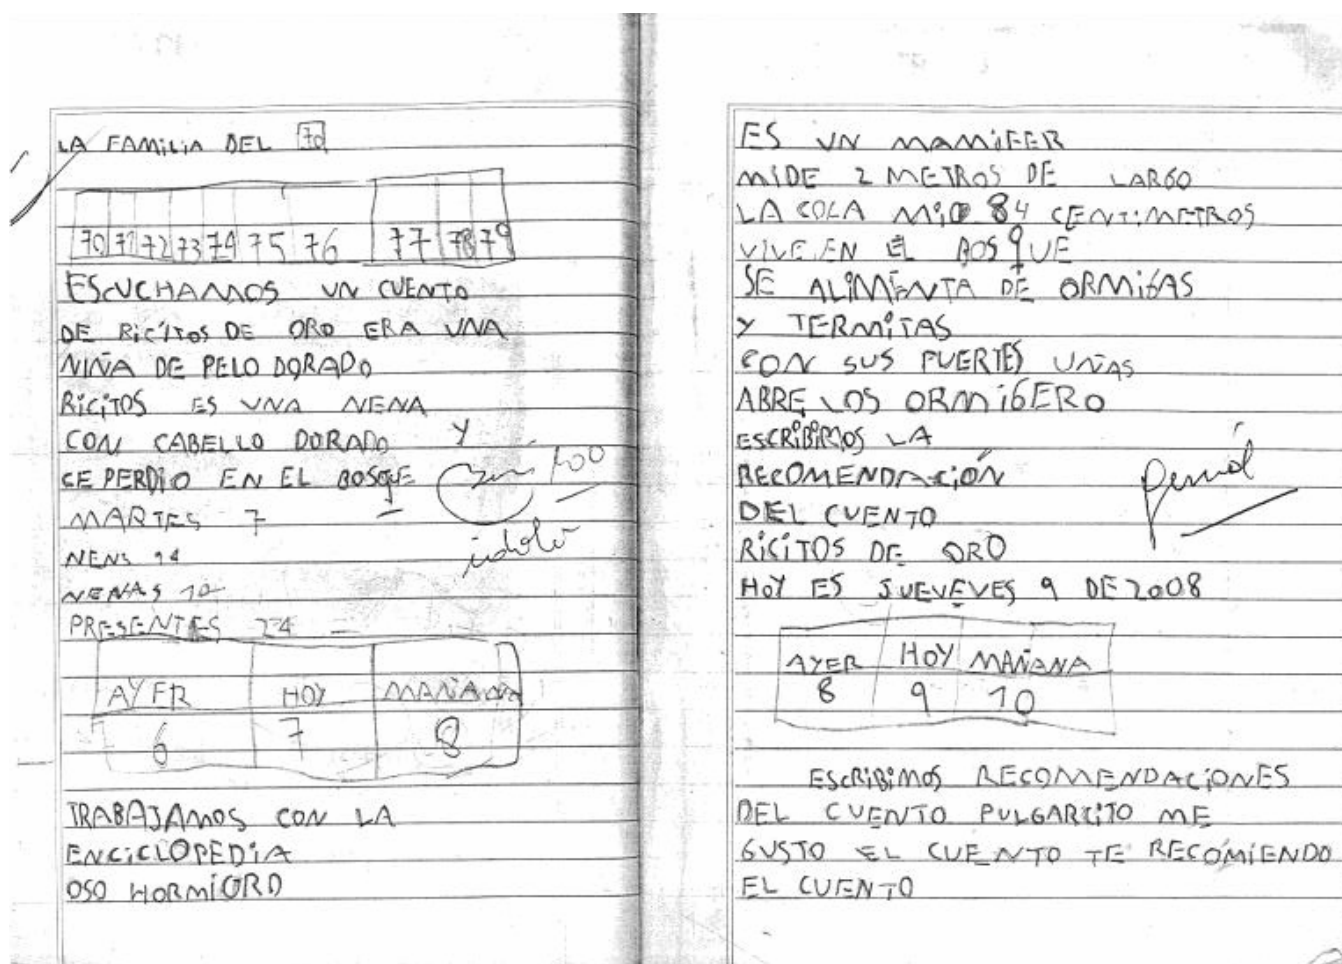 LA FAMILIA DEL 70
70 71 72 73 74 75 76 77 78 79
ESCUCHAMOS UN CUENTO
DE RICITOS DE ORO ERA UNA
NIÑA DE PELO DORADO
RICITOS ES UNA NENA
CON CABELLO DORADO Y
SE PERDIO EN EL BOSQUE
100
MARTES 7
idolo
NENS 14
NENAS 10
PRESENTES 24
AYER HOY MAÑANA
6 7 8
TRABAJAMOS CON LA
ENCICLOPEDIA
OSO HORMIORD
ES UN MAMIFER
MIDE 2 METROS DE LARGO
LA COLA MID 84 CENTIMETROS
VIVE EN EL BOSQUE
SE ALIMENTA DE ORMIGAS
Y TERMITAS
CON SUS FUERTES UÑAS
ABRE LOS ORMIGERO
ESCRIBIMOS LA
RECOMENDACIÓN
DEL CUENTO
RICITOS DE ORO
HOY ES JUEVEVES 9 DE 2008
AYER HOY MAÑANA
8 9 10
ESCRIBIMOS RECOMENDACIONES
DEL CUENTO PULGARCITO ME
GUSTO EL CUENTO TE RECOMIENDO
EL CUENTO